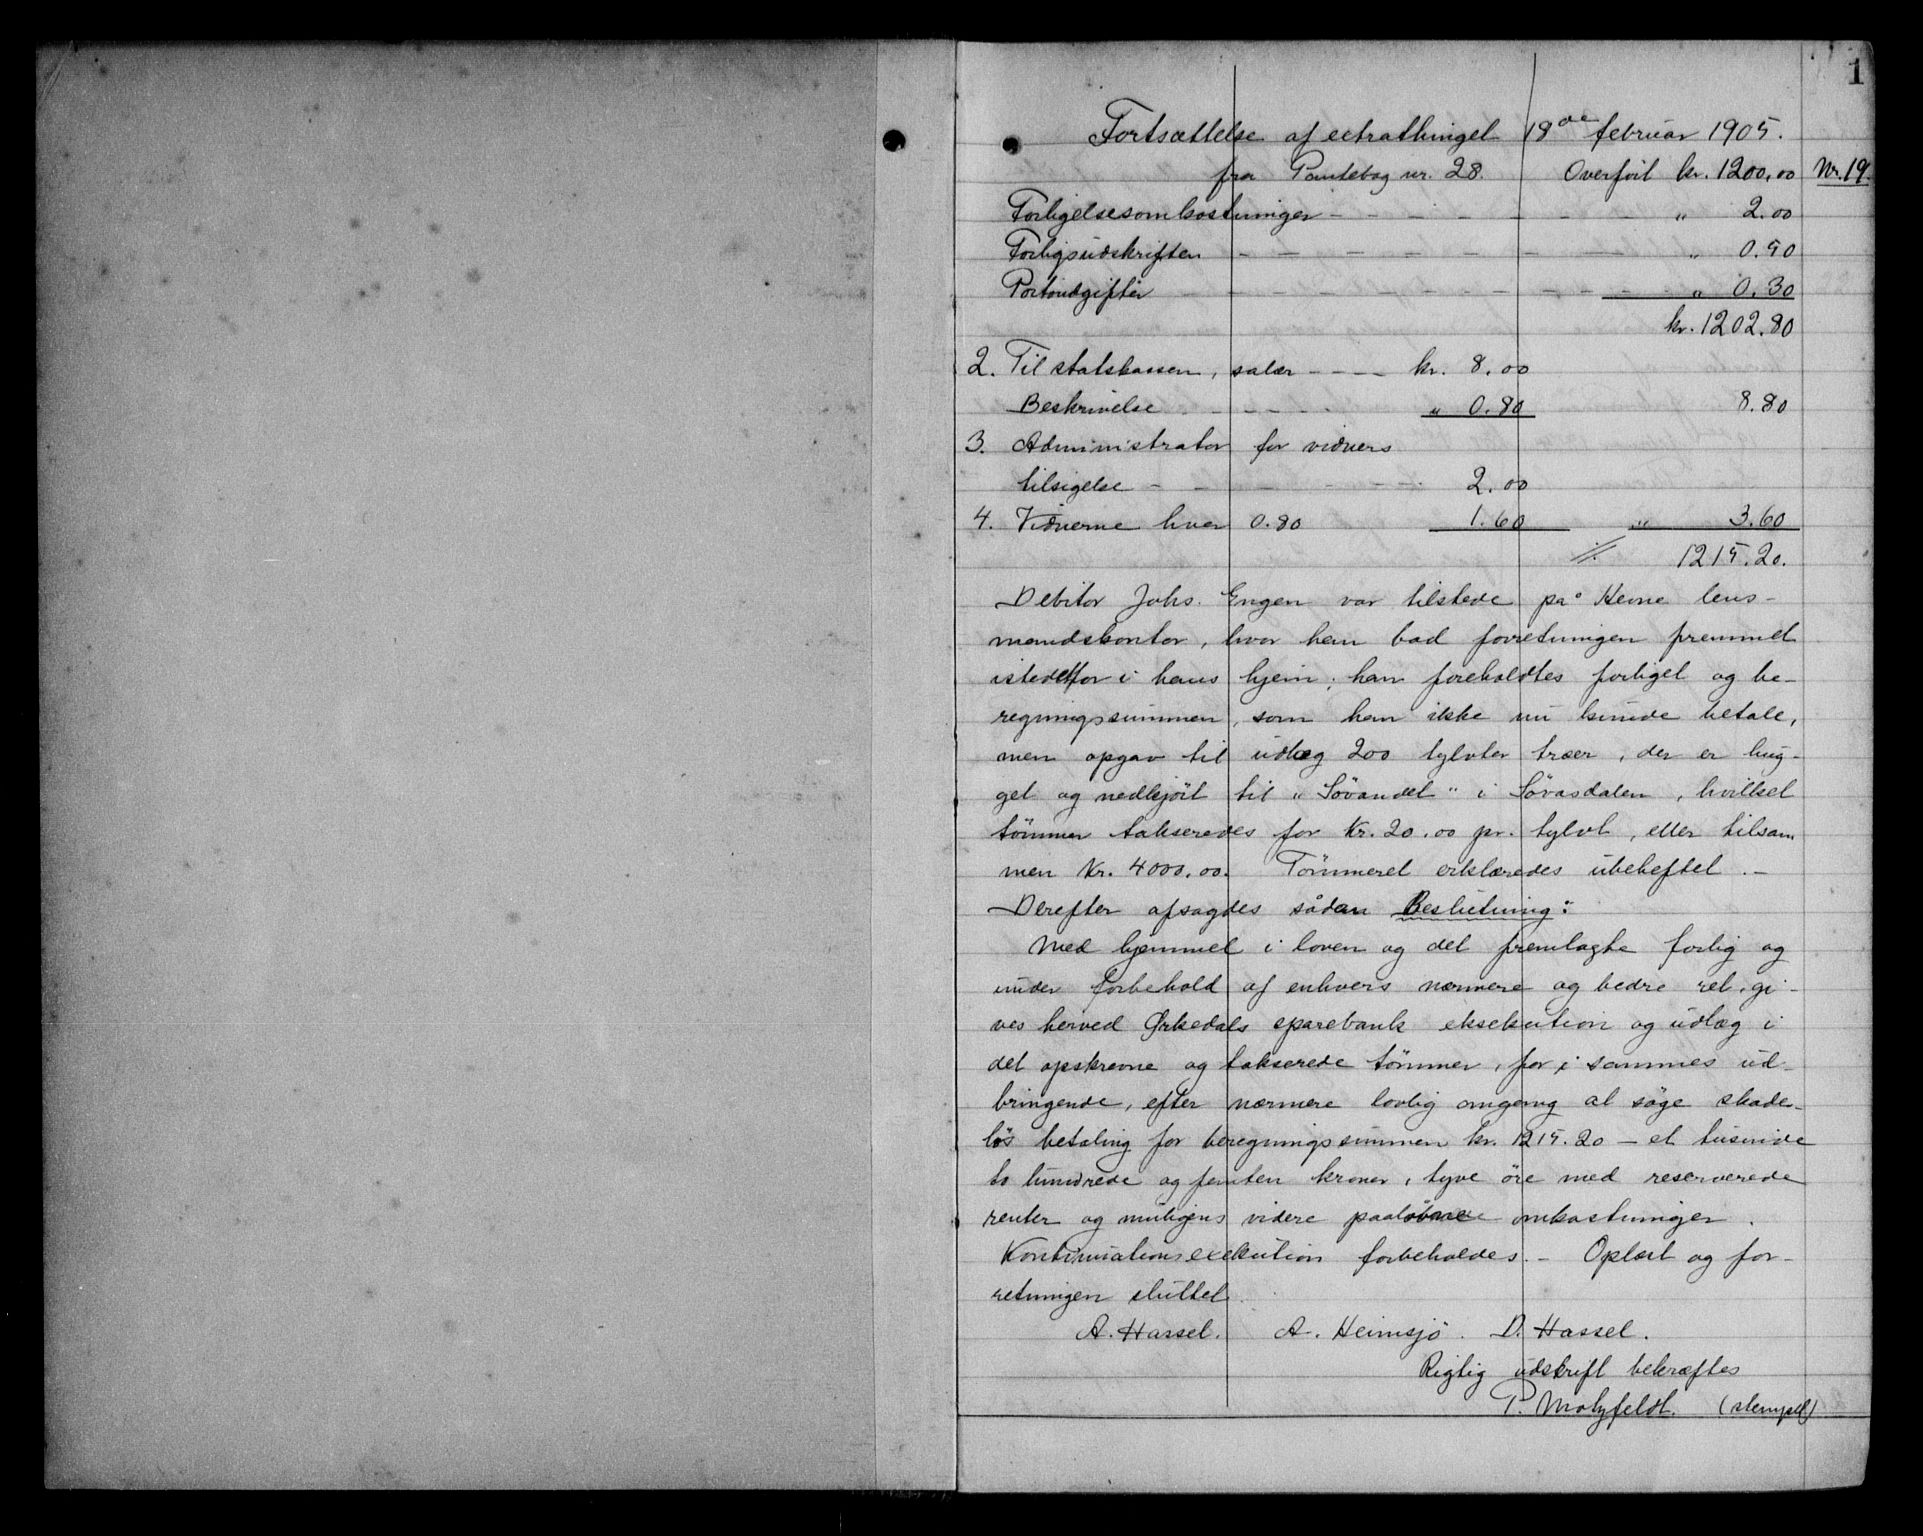 1
Fortsættelse af extrathinget 18de februar 1905.
fra Pantebog nr. 28. Overført kr. 1200,00 Nr. 19.
Forligelsesomkostninger - - - - - - - „ 2.00
Forligsudskriften - - - - - - - - „ 0.50
Portoudgifter - - - - - - - - „ 0.30
kr. 1202.80
2. Til statskassen, salær - - - - kr. 8.00
Beskrivelse - - - - - „ 0.80 8.80
3. Administrator for vidners
tilsigelse - - - - - - 2.00
4. Vidnerne hver 0.80 1.60 „ 3.60
1215.20.
Debitor Johs. Engen var tilstede på Hevne lens-
mandskontor, hvor han bad forretningen fremmet
istedetfor i hans hjem; han foreholdtes forliget og be-
regningssummen, som han ikke nu kunde betale,
men opgav til udlæg 200 tylvter træer, der er hug-
get og nedkjørt til „Søvandet“ i Søvasdalen, hvilket
tømmer takseredes for Kr. 20.00 pr. tylvt, eller tilsam
men Kr. 4000,00. Tømmeret erklæredes ubeheftet. -
Derefter afsagdes sådan Beslutning:
Med hjemmel i loven og det fremlagte forlig og
under forbehold af enhvers nærmere og bedre ret, gi-
ves herved Ørkedals sparebank eksekution og udlæg i
det opskrevne og takserede tømmer, for i sammes ud-
bringende, efter nærmere lovlig omgang at søge skade-
løs betaling for beregningssummen kr. 1215.20 - et tusinde
to hundrede og femten kroner, tyve øre med reserverede
renter og muligens videre paaløbne omkostninger.
Kontinuationsexekution forbeholdes. - Oplæst og for-
retningen sluttet.
A. Hassel. A. Heimsjø. D. Hassel.
Rigtig udskrift bekræftes
P. Motzfeldt. (stempel)